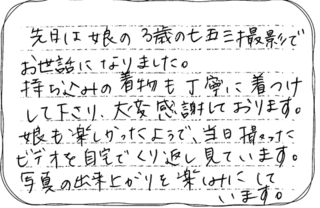 先日は娘の3歳の七五三撮影で
お世話になりました。
持ち込みの着物も丁寧に着つけ
して下さり、大変感謝しております。
娘も楽しかったようで、当日撮った
ビデオを自宅でくり返し見ています。
写真の出来上がりを楽しみにして
います。